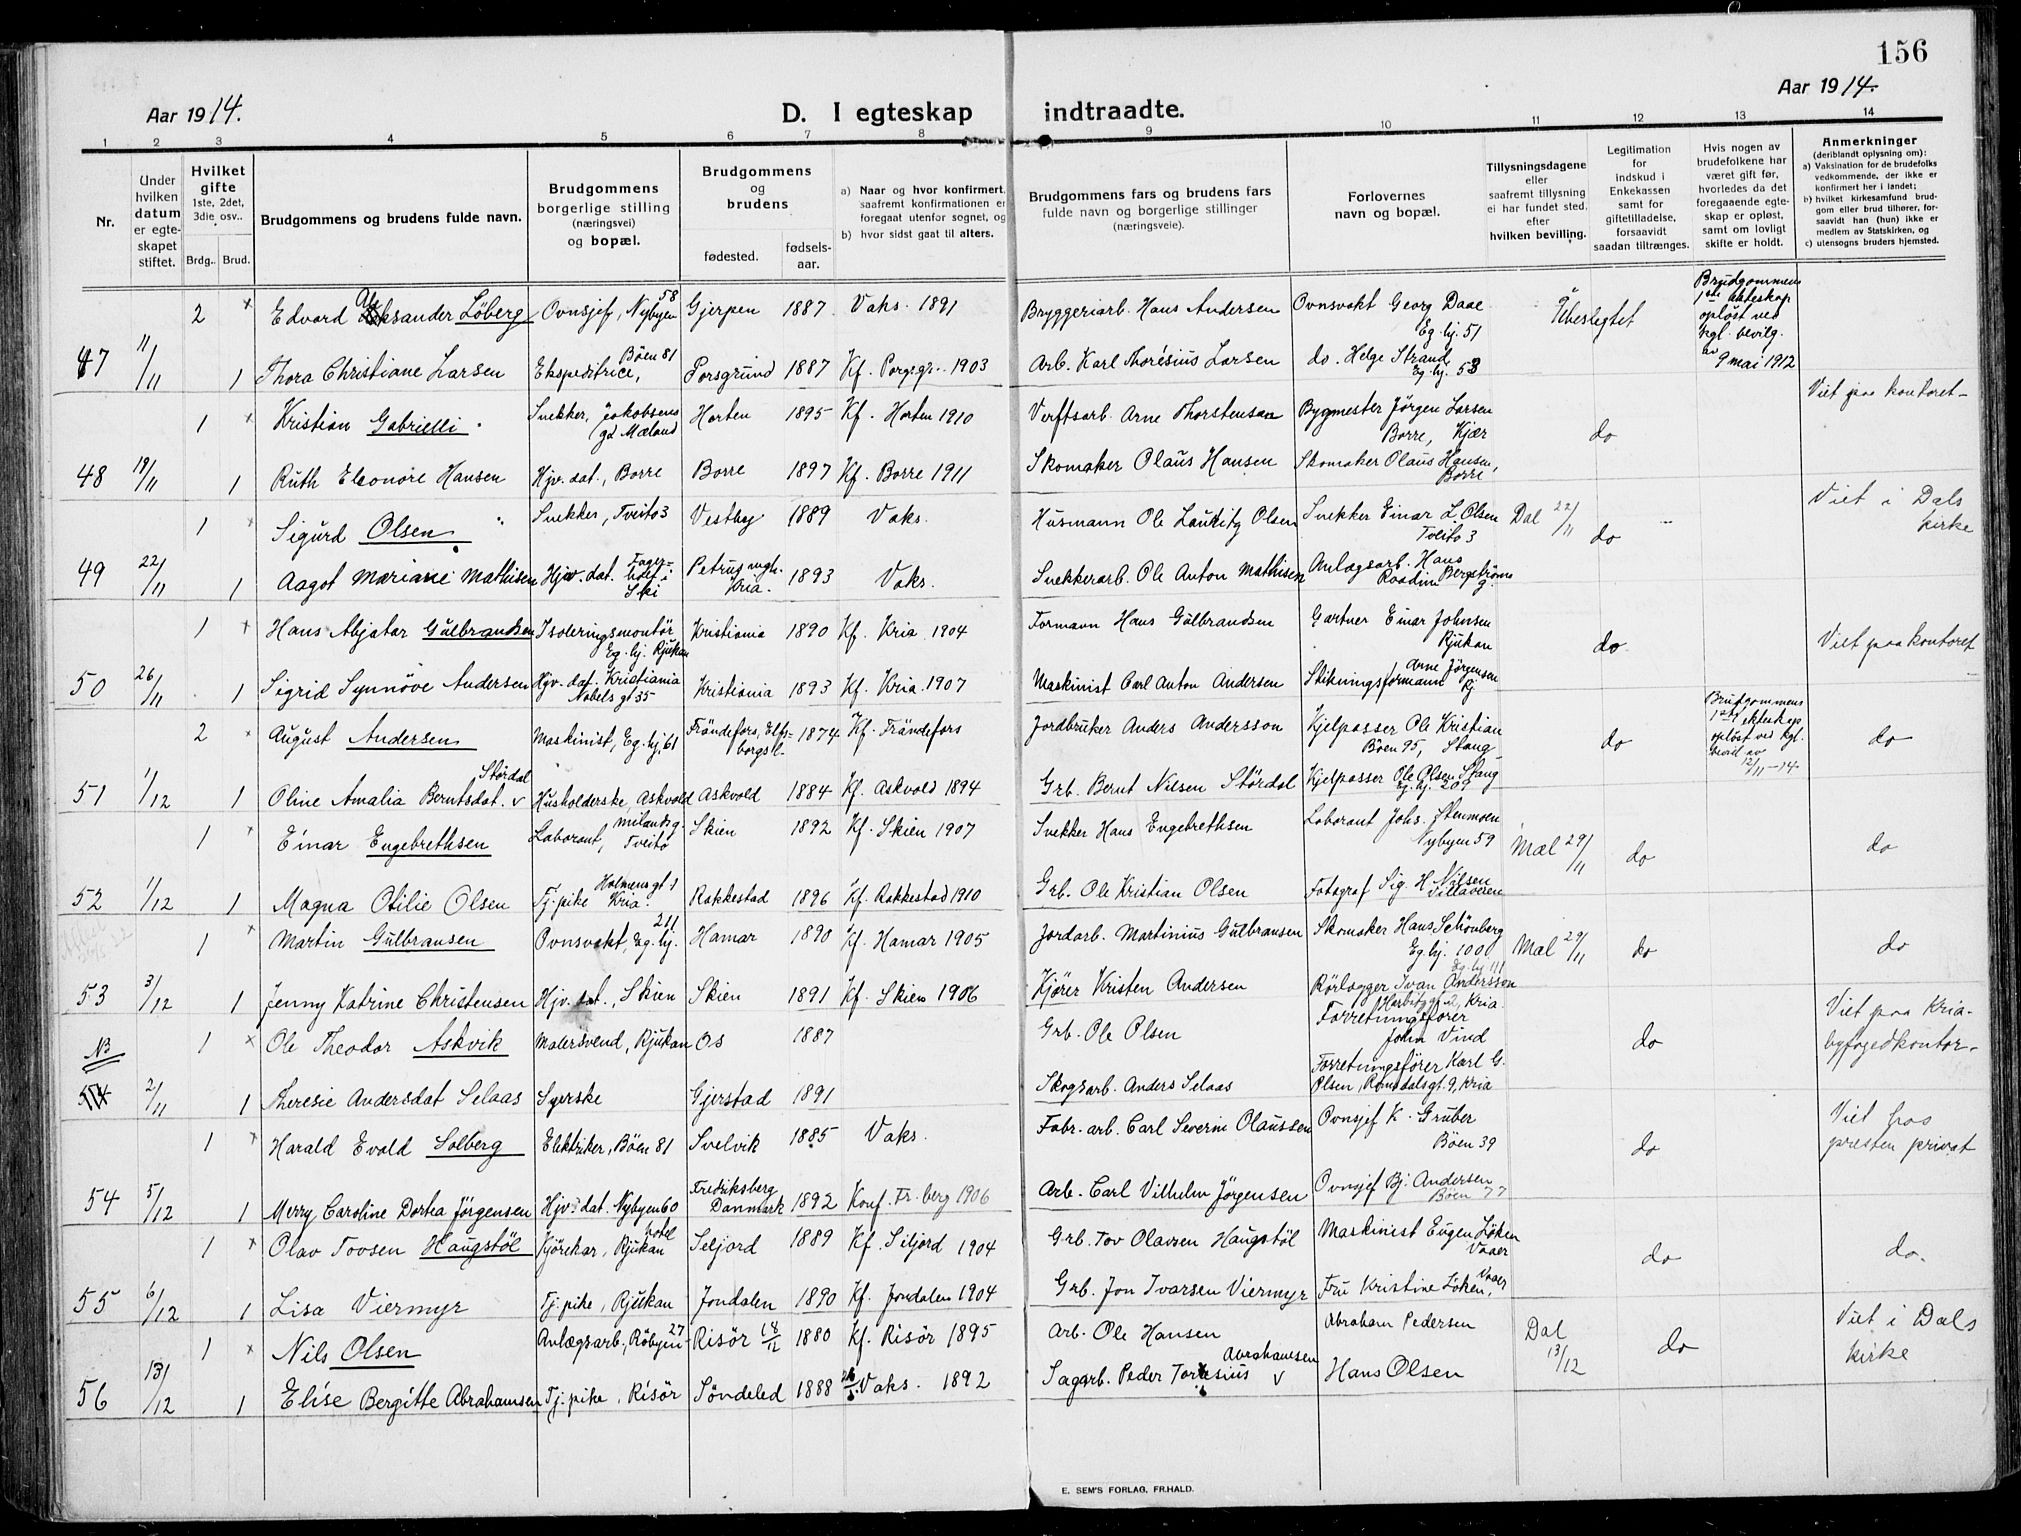 156
Aar 1914.
D. I egteskap indtraadte.
Aar 1914.
1 2 3 4 5 6 7 8 9 10 11 12 13 14
Nr.
Under hvilken datum er egteskapet stiftet.
Hvilket gifte 1ste, 2det, 3die osv..
Brdg. Brud.
Brudgommens og brudens fulde navn.
Brudgommens borgerlige stilling (næringsvei) og bopæl.
Brudgommens og brudens
fødested. fødselsaar.
a) Naar og hvor konfirmert, saafremt konfirmationen er foregaat utenfor sognet, og
b) hvor sidst gaat til alters.
Brudgommens fars og brudens fars fulde navn og borgerlige stillinger (næringsveie).
Forlovernes navn og bopæl.
Tillysningsdagene eller saafremt tillysning ei har fundet sted, efter hvilken bevilling.
Legitimation for indskud i Enkekassen samt for giftetilladelse, forsaavidt saadan tiltrænges.
Hvis nogen av brudefolkene har været gift før, hvorledes da det foregaaende egteskap er opløst, samt om lovligt skifte er holdt.
Anmerkninger (deriblandt oplysning om):
a) Vaksination for de brudefolks vedkommende, der ikke er konfirmert her i landet;
b) hvilket kirkesamfund brudgom eller brud tilhører, forsaavidt han (hun) ikke er medlem av Statskirken, og
c) utensogns bruders hjemsted.
2 Edvard Aleksander Löberg Ovnsjef, Nybyen 58 Gjerpen 1887 Vaks. 1891 Bryggeriarb. Hans Andersen Ovnsvakt Georg Daae Eg. hj. 51 Ubeslegtet Brudgommens 1ste ekteskap oplöst ved kgl. bevilg. av 9 mai 1912
47 11/11 1 Thora Christiane Larsen Ekspeditrice, Böen 81 Porsgrund 1887 Kf. Porsgr. 1903 Arb. Karl Thorésius Larsen do. Helge Strand Eg. hj. 53
1 Kristian Gabrielli Snekker, Jakobsens gd Mæland Horten 1895 Kf. Horten 1910 Verftsarb. Arne Thorstensen Bygmester Jörgen Larsen Borre, Kjær do Viet paa kontoret
48 19/11 1 Ruth Eleonore Hansen Hjv. dat., Borre Borre 1897 Kf. Borre 1911 Skomaker Olaus Hansen Skomaker Olaus Hansen, Borre
1 Sigurd Olsen Snekker, Tveito 3 Vestby 1889 Vaks. Husmann Ole Lauritz Olsen Snekker Einar L. Olsen Tveito 3 Dal 22/11 do Viet i Dals kirke
49 22/11 1 Aagot Mariane Mathisen Hjv. dat. Fagerholt i Ski Petrus mgh. Kria. 1893 Vaks. Snekkerarb. Ole Anton Mathisen Anlagsarb. Hans Bergströms
1 Hans Abjatar Gulbrandsen Isoleringsmontör Eg. hj. Rjukan Kristiania 1890 Kf. Kria 1904 Formann Hans Gulbrandsen Gartner Einar Johnsen Rjukan do Viet paa kontoret
50 26/11 1 Sigrid Synnöve Andersen Hjv. dat. Kristiania Nobels gt 35 Kristiania 1893 Kf. Kria. 1907 Maskinist Carl Anton Andersen Stikningsformann Arne Jörgensen Rj
2 August Andersen Maskinist, Eg. hj 61 Frändefors, Elfsborgs l. 1874 Kf. Frändefors Jordbruker Anders Andersson Kjelpasser Ole Kristian Böen 95, Stang do Brudgommens 1ste ekteskap oplöst ved kgl. bevil av 12/11-14 do
51 1/12 1 Oline Amalia Berntsdat. Stördal Husholderske Askvold Askvold 1884 Kf. Askvold 1894 Grb. Bernt Nilsen Stördal Kjelpasser Ole Olsen Stang Eg. hj. 209
1 Einar Engebrethsen Laborant, Milandsg. Tveito Skien 1892 Kf. Skien 1907 Snekker Hans Engebrethsen Laborant Johs. Stenmoen Nybyen 59 Mæl 29/11 do do
52 1/12 1 Magna Otilie Olsen Tj. pike Holmensgt 1 Kria. Rakkestad 1896 Kf. Rakkestad 1910 Grb. Ole Kristian Olsen Fotograf Sig. H. Nilsen
1 Martin Gulbransen Ovnsvakt, Eg. hj. 211 Hamar 1890 Kf. Hamar 1905 Jordarb. Martinius Gulbransen Skomaker Hans Schönberg Eg. hj. 100 Mæl 29/11 do do
53 3/12 1 Jenny Katrine Christensen Hjv. dat., Skien Skien 1891 Kf. Skien 1906 Kjörer Kristen Andersen Rörlægger Ivar Andersson Eg. hj 111
NB 1 Ole Theodor Askvik Malersvend, Rjukan Os 1887 Grb. Ole Olsen Forretningsförer John Vind do Viet paa Kria- byfogedkontor
54 2/11 1 Theresie Andersdat Selaas Syerske Gjerstad 1891 Skogsarb. Anders Selaas Forretningsförer Karl G. Olsen, Romsdalsgt. 9, Kria
1 Harald Evald Solberg Elektriker, Böen 81 Svelvik 1885 Vaks. Fabr. arb. Carl Severin Olaussen Ovnsjef K. Gruber Böen 39 do Viet hos presten privat
54 5/12 1 Merry Caroline Dortea Jörgensen Hjv. dat. Nybyen 60 Fredriksberg Danmark 1892 Konf. Fr. berg 1906 Arb. Carl Vilhelm Jörgensen Ovnsjef Bj. Andersen Böen 77
1 Olav Tovsen Haugstöl Kjörekar, Rjukan hotel Seljord 1889 Kf. Seljord 1904 Grb. Tov Olavsen Haugstöl Maskinist Eugen Löken Vaaer do do.
55 6/12 1 Lisa Viermyr Tj. pike, Rjukan Jondalen 1890 Kf. Jondalen 1904 Grb. Jon Ivarsen Viermyr Fru Kristine Löken, Vaaer
1 Nils Olsen Anlægsarb., Röbyen 27 Risör 18/12 1880 Kf. Risör 1895 Arb. Ole Hansen Abraham Pedersen Dal 13/12 do Viet i Dals kirke
56 13/12 1 Elise Bergitte Abrahamsen Tj. pike, Risör Söndeled 1888 Vaks. 1892 Sagarb. Peder Toresius Abrahamsen Hans Olsen
E. SEM'S FORLAG, FR.HALD.